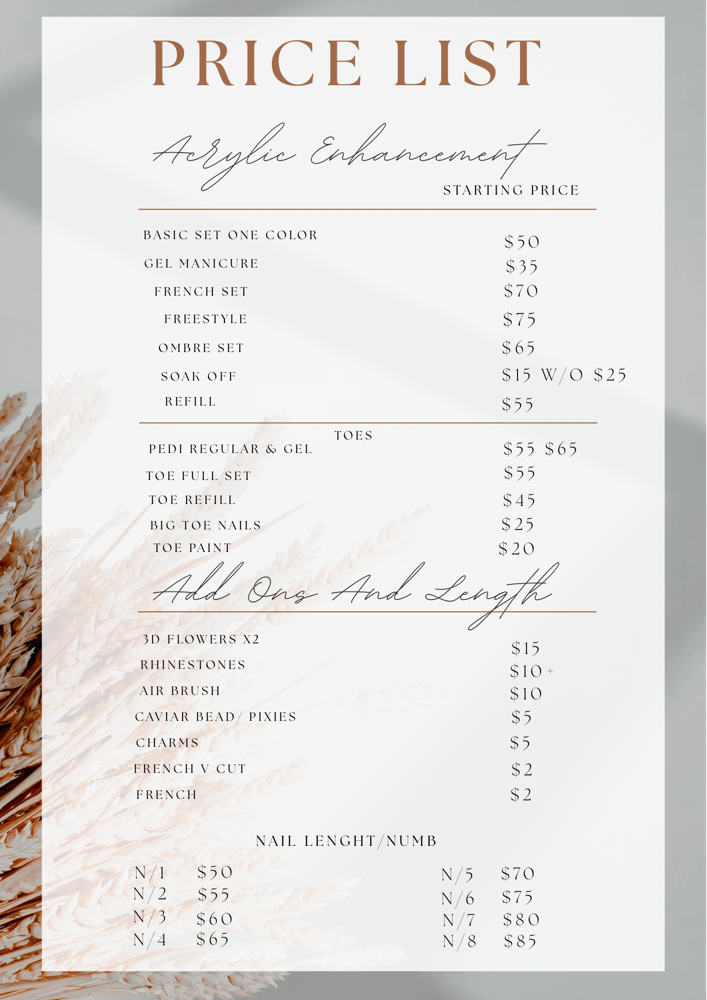 PRICE LIST
Acrylic Enhancement
STARTING PRICE
BASIC SET ONE COLOR $50
GEL MANICURE $35
FRENCH SET $70
FREESTYLE $75
OMBRE SET $65
SOAK OFF $15 W/O $25
REFILL $55
TOES
PEDI REGULAR & GEL $55 $65
TOE FULL SET $55
TOE REFILL $45
BIG TOE NAILS $25
TOE PAINT $20
Add Ons And Length
3D FLOWERS X2 $15
RHINESTONES $10+
AIR BRUSH $10
CAVIAR BEAD/ PIXIES $5
CHARMS $5
FRENCH V CUT $2
FRENCH $2
NAIL LENGHT/NUMB
N/1 $50 N/5 $70
N/2 $55 N/6 $75
N/3 $60 N/7 $80
N/4 $65 N/8 $85